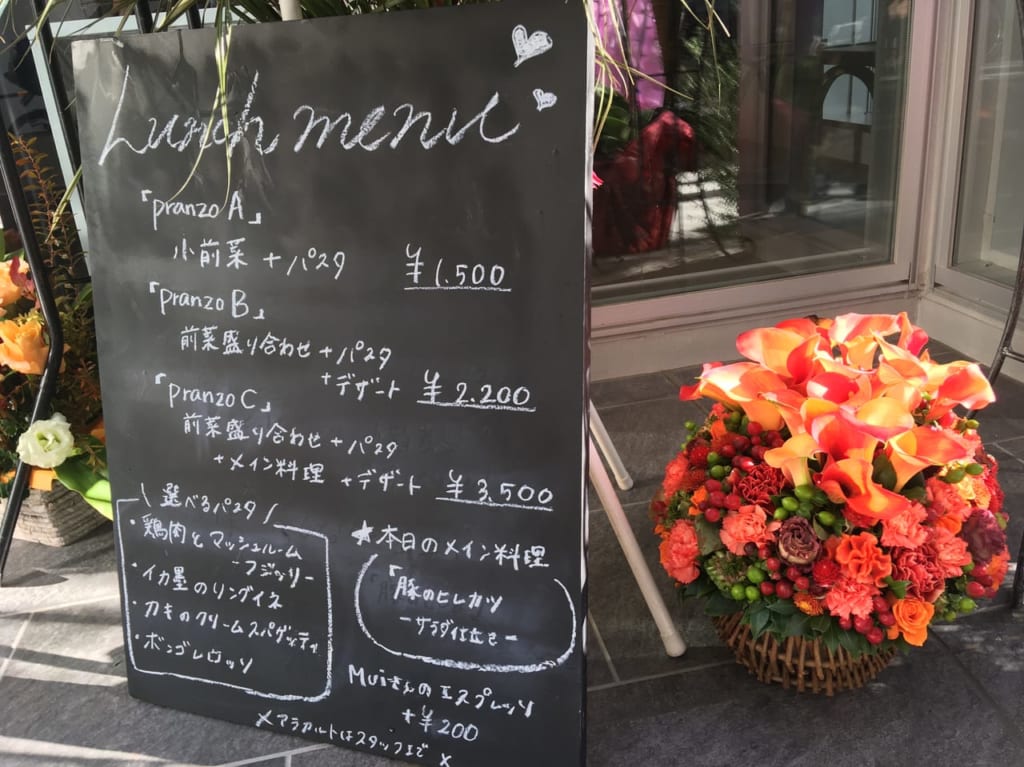 Lunch menu
「pranzo A」
小前菜 + パスタ ¥1.500
「pranzo B」
前菜盛り合わせ + パスタ
+ デザート ¥2.200
「pranzo C」
前菜盛り合わせ + パスタ
+ メイン料理 + デザート ¥3.500
\ 選べるパスタ /
・鶏肉とマッシュルーム
フジッリー
・イカ墨のリングイネ
・カキのクリームスパゲッティ
・ボンゴレロッソ
★本日のメイン料理
「豚のヒレカツ
ーサラダ仕立きー
Muiさんのエスプレッソ
+¥200
×アラカルトはスタッフまで×